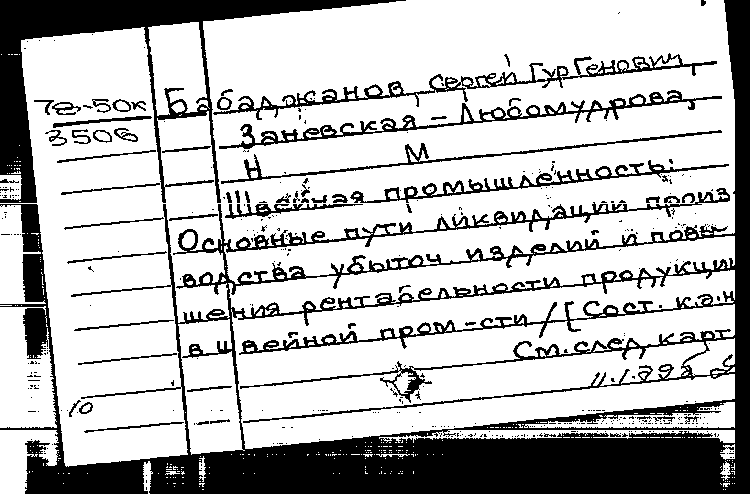 78-50к Бабаджанов, Сергей ГурГенович,
3506 Заневская-Любомудрова,
Н М
Швейная промышленность:
Основные пути ликвидации произ-
водства убыточ. изделий и повы-
шения рентабельности продукции
в швейной пром-сти / [Сост. к.э.н
См. след. карт
10